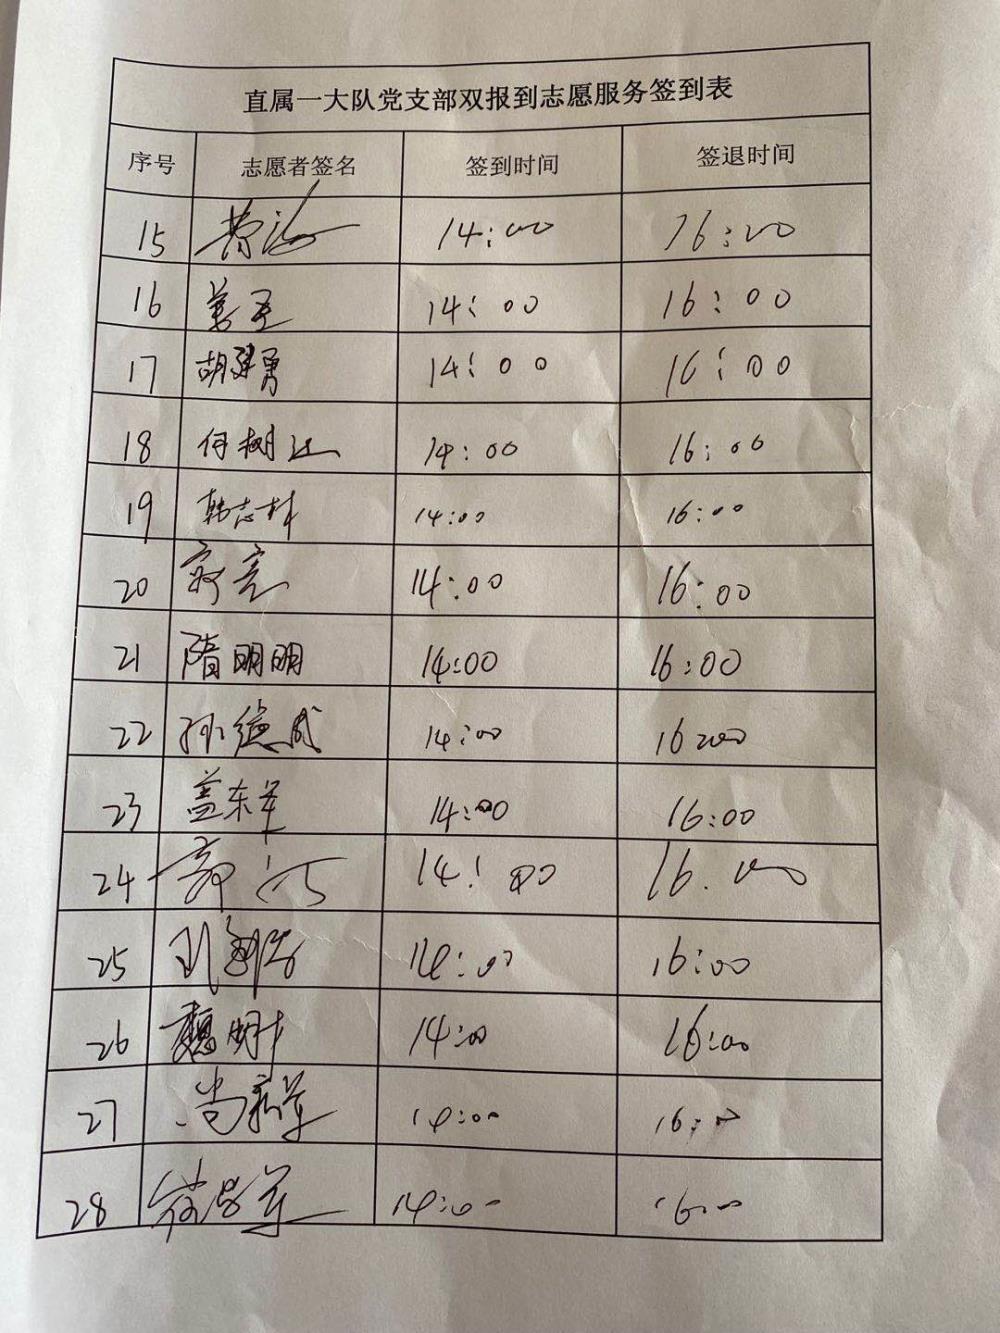 直属一大队党支部双报到志愿服务签到表
序号 志愿者签名 签到时间 签退时间
15 14:00 16:00
16 14:00 16:00
17 胡建勇 14:00 16:00
18 何树 14:00 16:00
19 韩志林 14:00 16:00
20 14:00 16:00
21 隋明明 14:00 16:00
22 孙德成 14:00 16:00
23 盖东军 14:00 16:00
24 14:00 16:00
25 14:00 16:00
26 魏明 14:00 16:00
27 尚 军 14:00 16:00
28 14:00 16:00